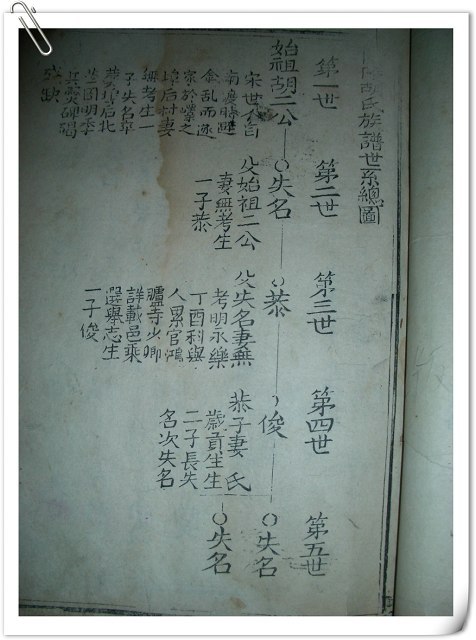 胡氏族譜世系總圖
第一世
始祖胡二公
宋世人自
南慶時避
金乱而
家於之
埠后村妻
無考生一
子失名葬
后北
明季
兵災碑碣
残缺
第二世
失名
父始祖二公
妻無考生
一子恭
第三世
恭
父失名妻無
考明永樂
丁酉科與
人累官鴻
臚寺少卿
詳載邑乘
選舉志生
一子俊
第四世
俊
恭子妻 氏
歲貢生生
二子長失
名次失名
第五世
失名
失名